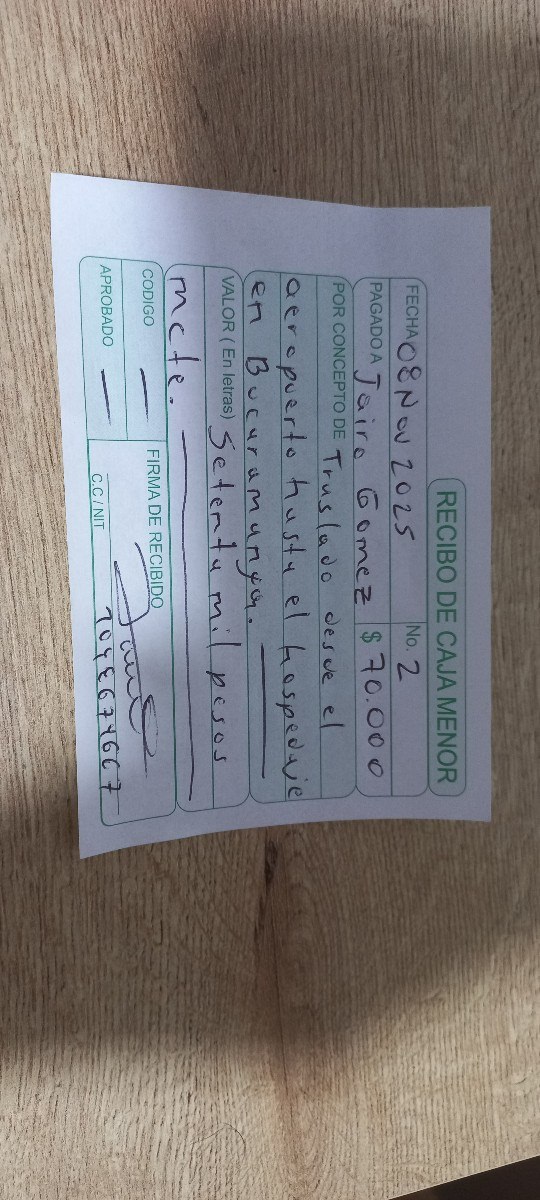 RECIBO DE CAJA MENOR
FECHA 08 Nov 2025 No. 2
PAGADO A Jairo Gomez $ 70.000
POR CONCEPTO DE Traslado desde el
aeropuerto hasta el hospedaje
en Bucaramanga.
VALOR (En letras) Setenta mil pesos
mcte.
CODIGO —
FIRMA DE RECIBIDO
APROBADO —
C.C / NIT 1098674667